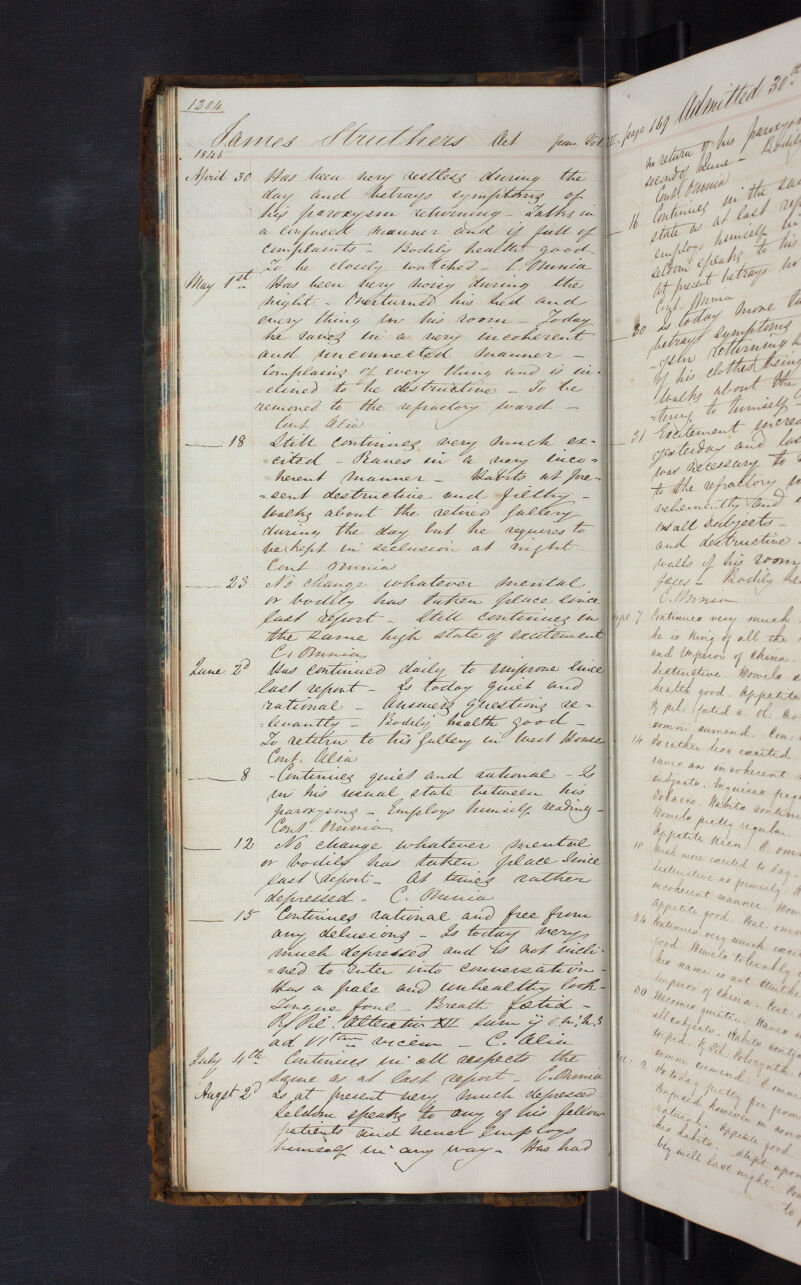 1304
James Struthers Aet from Vol
1845
April 30 Has been very restless during the
day and betrays symptoms of
his paroxysm returning - Talks in
a confused manner and is full of
complaints - Bodily health good
To be closely watched - C. Omnia
May 1st Has been very noisy during the
night - Overturned his bed and
every thing in his room - Today
he raves in a very incoherent
and unconnected manner -
Complains of every thing and is in-
-clined to be destructive - To be
removed to the refractory ward -
Cont Alia
18 Still continues very much ex=
=cited - Raves in a very inco=
=herent manner - Habits at pre=
=sent destructive and filthy -
Walks about the retired gallery
during the day but he requires to
be kept in seclusion at night
Cont Omnia
23 No change whatever mental
or bodily has taken place since
last report - Still continues in
the same high state of excitement
C. Omnia
June 2d Has continued daily to improve since
last report - Is today quiet and
rational - Answers questions re=
=levantly - Bodily health good -
To return to his gallery in West House
Cont. Alia
8 Continues quiet and rational - Is
in his usual state between his
paroxysms - Employs himself reading -
Cont. Omnia
12 No change whatever mental
or bodily has taken place since
last report - At times rather
depressed - C. Omnia
15 Continues rational and free from
any delusions - Is today very
much depressed and is not incli-
=ned to enter into conversation -
Has a pale and unhealthy look -
Tongue foul - Breath fœtid -
Rx Pil. Alterativ XII Sum ij o. n. h. s
ad VItam vicem - C. Alia
July 4th Continues in all respects the
same as at last report - C. Omnia
Augst 2d Is at present very much depressed
Seldom speaks to any of his fellow
patients and never employs
himself in any way - Has had
page 169 Admitted 30th
on return of his paroxys
second June - Bodily
Cont. Omnia
16 Continues in the sa
state as at last rep
employs himself in
seldom speaks to his
At present betrays no
Cont. Omnia
30 Is today more
betrays symptoms
-ysm returning
of his clothes being
Walks about the
=tering to himself -
31 Excitement increa
yesterday and las
was necessary to
to the refractory
vehemently and
on all subjects -
and destructive -
walls of his room
faeces - Bodily he
C. Omnia
Sept 7 Continues very much
he is King of all the
and Emperor of China.
destructive. Bowels
health good. Appetite
omni
14 Is rather less excited
raves in an incoherent
subjects. Inquires
Tobacco. Habits contin
Bowels pretty regular
Appetite keen. C. omn
18 Much more excited to day.
destructive as formerly.
incoherent manner. Bow
appetite good. Cont. omn
24 Continues very much exci
good. Bowels tolerably
his name is not Struthe
Emperor of China. Cont.
30 Becomes quieter. Raves
all subjects. Habits conti
torpid.
2 Is today pretty free from
confused however in
natural. Appetite good
his habits. Slept
bly well last night.